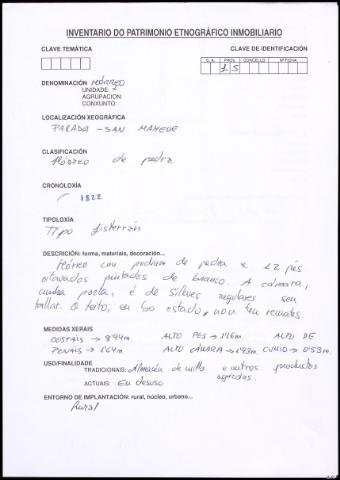 INVENTARIO DO PATRIMONIO ETNOGRÁFICO INMOBILIARIO
CLAVE TEMÁTICA
CLAVE DE IDENTIFICACIÓN
C. A. PROV. CONCELLO Nº FICHA
1 5
DENOMINACIÓN HÓRREO
UNIDADE: x
AGRUPACION:
CONXUNTO:
LOCALIZACIÓN XEOGRÁFICA
PARADA - SAN MAMEDE
CLASIFICACIÓN
Hórreo de pedra
CRONOLOXÍA
1822
TIPOLOXÍA
Tipo fisterrán
DESCRICIÓN: forma, materiais, decoración...
Hórreo con podium de pedra e 12 pés
oitavados pintados de branco. A cámara,
cunha porta, é de sillares regulares sen
tallar. O teito, en bo estado, non ten remates.
MEDIDAS XERAIS
COSTAIS → 8'94m ALTO PÉS → 1'16m ALTO DE
PENAIS → 1'64m ALTO CÁMARA → 1'93m CUMIO → 0'53m.
USO/FINALIDADE
TRADICIONAIS: Almacén de millo e outros productos
agrícolas.
ACTUAIS: En desuso
ENTORNO DE IMPLANTACIÓN: rural, núcleo, urbano...
Rural